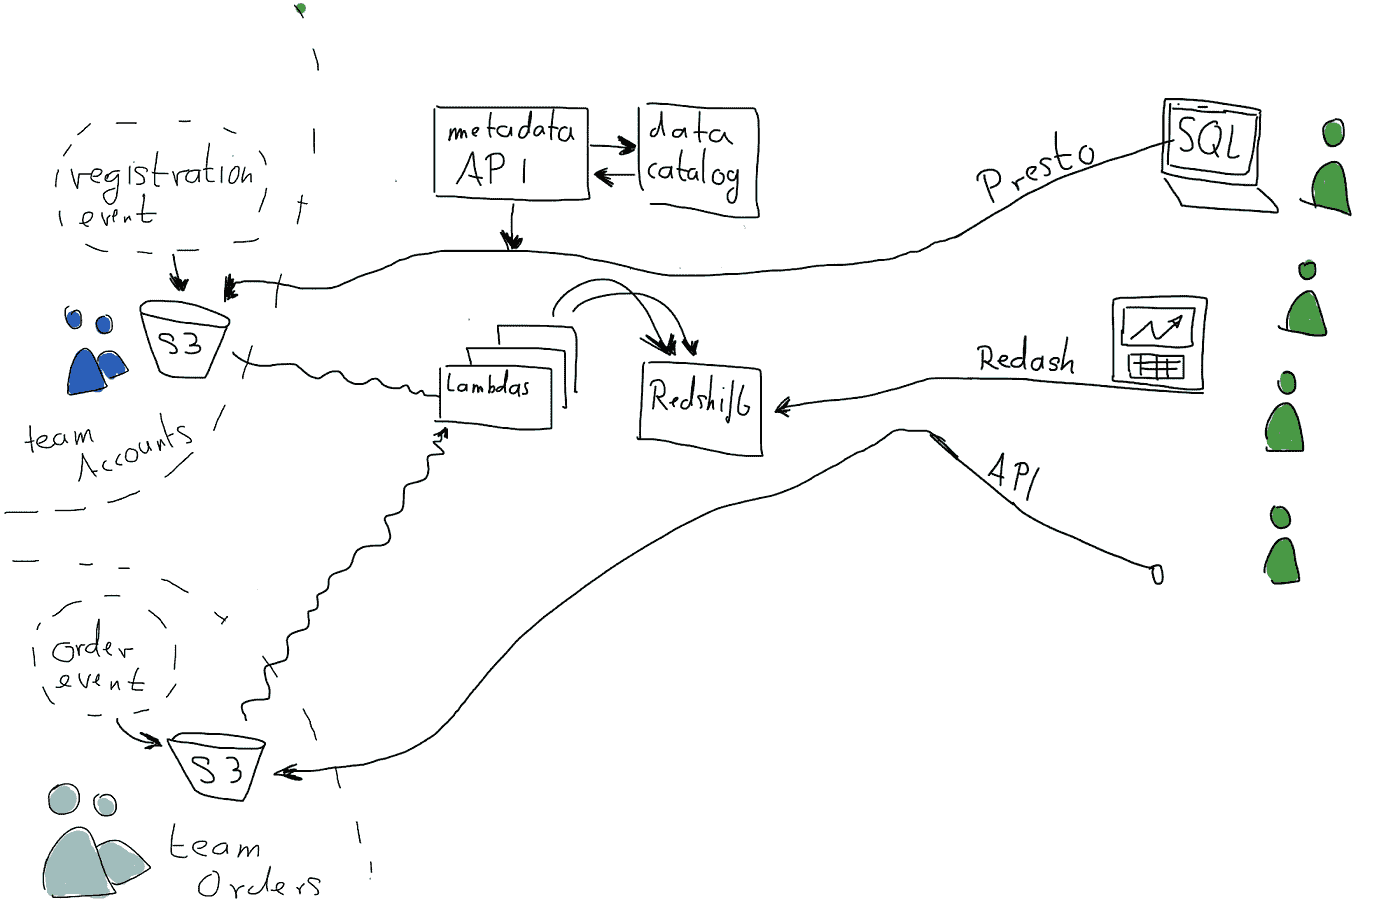 registration
event
S3
team
Accounts
metadata
API
data
catalog
Presto
SQL
Lambdas
Redshift
Redash
API
order
event
S3
team
Orders